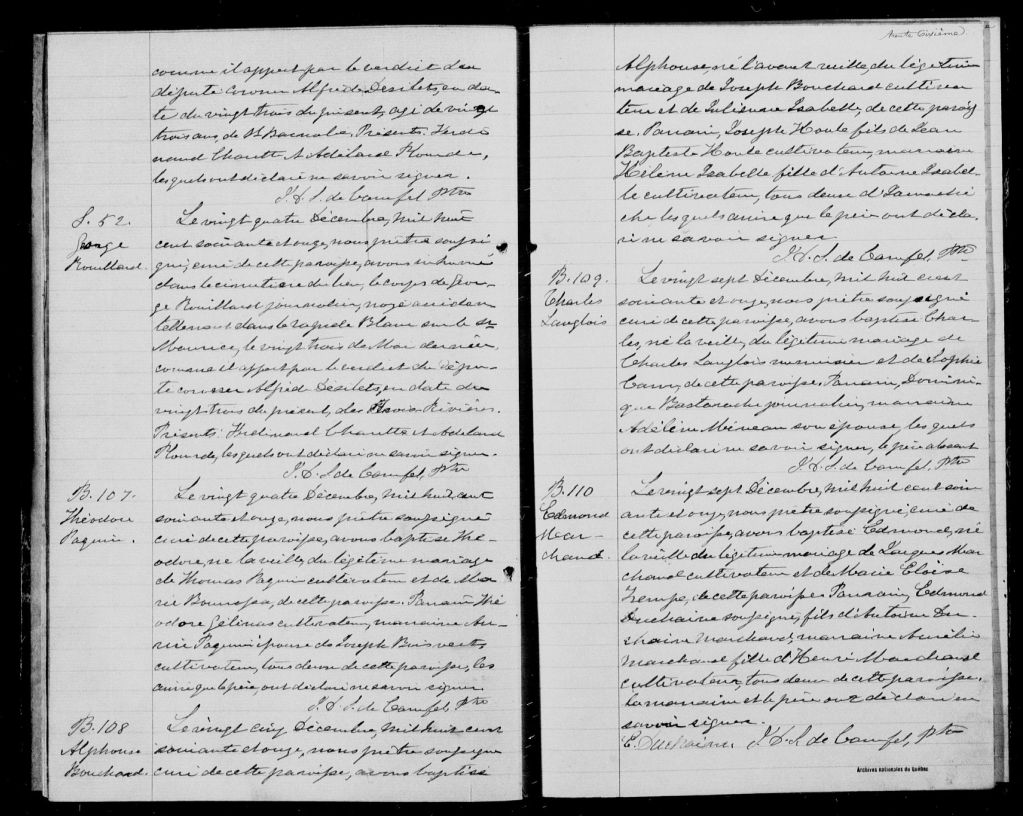 comme il appert par le verdict du
député Coroner Alfred Désilets, en da-
te du vingt trois du présent, agé de vingt
trois ans de St Barnabé. Présents. Ferdi
nand Charette et Adélard Plourde,
lesquels ont déclaré ne savoir signer.
J. H. S. de Camfel, Ptre
S. 52.
George
Rouillard.
Le vingt quatre Décembre, mil huit
cent soixante et onze, nous prêtre soussi
gné, curé de cette paroisse, avons inhumé
dans le cimetière du lieu, le corps de Geor-
ge Rouillard journalier, noyé accident
tellement dans le rapide Blanc sur le St
Maurice, le vingt trois de Mai dernier,
comme il appert par le verdict du Dépu-
té coroner Alfred Désilets, en date du
vingt trois du présent, des Trois Rivières.
Présents: Ferdinand Charette et Adélard
Plourde, lesquels ont déclaré ne savoir signer.
J. H. S. de Camfel, Ptre
B. 107.
Théodore
Paquin.
Le vingt quatre Décembre, mil huit cent
soixante et onze, nous prêtre soussigné
curé de cette paroisse, avons baptisé Thé-
odore, né la veille, du légitime mariage
de Thomas Paquin cultivateur et de Ma
rie Bournssa, de cette paroisse. Parrain Thé
odore Gélinas cultivateur, marraine Au-
rie Paquin épouse de Joseph Boisvert,
cultivateur, tous deux de cette paroisse, les
quels que le père, ont déclaré ne savoir signer
J. H. S. de Camfel, Ptre
B. 108
Alphonse
Bouchard.
Le vingt cinq Décembre, mil huit cent
soixante et onze, nous prêtre soussigné
curé de cette paroisse, avons baptisé
trente sixième
Alphonse, né l'avant veille, du légitime
mariage de Joseph Bouchard cultiva
teur et de Julienne Isabelle, de cette parois
se. Parrain, Joseph Houle fils de Jean
Baptiste Houle cultivateur, marraine
Hélène Isabelle fille d'Antoine Isabel-
le cultivateur, tous deux d'Yamachi
che lesquels ainsi que le père ont décla-
ré ne savoir signer
J. H. S. de Camfel, Ptre
B. 109.
Charles
Langlois
Le vingt sept Décembre, mil huit cent
soixante et onze, nous prêtre soussigné
curé de cette paroisse, avons baptisé Char-
les, né la veille, du légitime mariage de
Charles Langlois menuisier et de Sophie
de cette paroisse. Parrain, Domini-
que Bastarache journalier, marraine
Adéline Mineau son épouse, lesquels
ont déclaré ne savoir signer, le père absent
J. H. S. de Camfel, Ptre
B. 110
Edmond
Mar-
chand.
Le vingt sept Décembre, mil huit cent soix
ante et onze, nous prêtre soussigné, curé de
cette paroisse, avons baptisé Edmond, né
la veille du légitime mariage de Jacques Mar
chand cultivateur et de Marie Eloïse
Lampe, de cette paroisse Parrain, Edmond
Duchaine soussigné, fils d'Antoine Du-
chaine marchand, marraine Aurélie
Marchand fille d'Henri Marchand
cultivateur, tous deux de cette paroisse,
la marraine et le père ont déclaré ne
savoir signer.
E. Duchaine. J. H. S. de Camfel, Ptre
Archives nationales du Québec